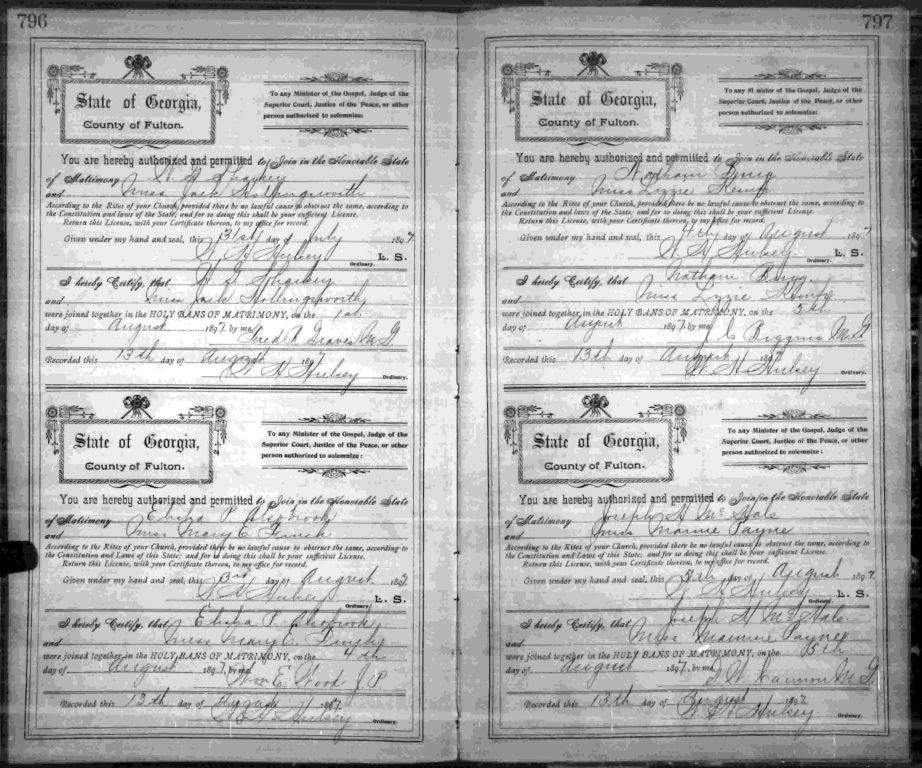 796
State of Georgia,
County of Fulton.
To any Minister of the Gospel, Judge of the
Superior Court, Justice of the Peace, or other
person authorized to solemnize:
You are hereby authorized and permitted to Join in the Honorable State
of Matrimony
and Miss Jack Hollingsworth
According to the Rites of your Church, provided there be no lawful cause to obstruct the same, according to
the Constitution and laws of the State; and for so doing this shall be your sufficient License.
Return this License, with your Certificate thereon, to my office for record.
Given under my hand and seal, this 31st day of July 1897.
W. H. Hulsey L. S.
Ordinary.
I hereby Certify, that
and Miss Jack Hollingsworth
were joined together in the HOLY BANS OF MATRIMONY, on the 1st
day of August 1897, by me,
Graves M G
Recorded this 13th day of August 1897
W. H. Hulsey
Ordinary.
State of Georgia,
County of Fulton.
To any Minister of the Gospel, Judge of the
Superior Court, Justice of the Peace, or other
person authorized to solemnize:
You are hereby authorized and permitted to Join in the Honorable State
of Matrimony Elisha P.
and Miss Mary E.
According to the Rites of your Church, provided there be no lawful cause to obstruct the same, according to
the Constitution and Laws of this State; and for so doing this shall be your sufficient License.
Return this License, with your Certificate thereon, to my office for record.
Given under my hand and seal, this 3rd day of August 1897.
W. H. Hulsey L. S.
Ordinary.
I hereby Certify, that Elisha P.
and Miss Mary E.
were joined together in the HOLY BANS OF MATRIMONY, on the 4th
day of August 1897, by me,
Wm E. Wood J. P.
Recorded this 13th day of August 1897
W. H. Hulsey
Ordinary.
797
State of Georgia,
County of Fulton.
To any Minister of the Gospel, Judge of the
Superior Court, Justice of the Peace, or other
person authorized to solemnize:
You are hereby authorized and permitted to Join in the Honorable State
of Matrimony Nathan
and Miss Lizzie Kemp
According to the Rites of your Church, provided there be no lawful cause to obstruct the same, according to
the Constitution and laws of the State; and for so doing this shall be your sufficient License.
Return this License, with your Certificate thereon, to my office for record.
Given under my hand and seal, this 4th day of August 1897
W. H. Hulsey L. S.
Ordinary.
I hereby Certify, that Nathan
and Miss Lizzie Kemp
were joined together in the HOLY BANS OF MATRIMONY, on the 5th
day of August 1897, by me
M G
Recorded this 13th day of August 1897
W. H. Hulsey
Ordinary.
State of Georgia,
County of Fulton.
To any Minister of the Gospel, Judge of the
Superior Court, Justice of the Peace, or other
person authorized to solemnize:
You are hereby authorized and permitted to Join in the Honorable State
of Matrimony Joseph H. McHale
and Miss Mamie Payne
According to the Rites of your Church, provided there be no lawful cause to obstruct the same, according to the
Constitution and Laws of this State; and for so doing this shall be your sufficient License.
Return this License, with your Certificate thereon, to my office for record.
Given under my hand and seal, this day of August 1897.
W. H. Hulsey L. S.
Ordinary.
I hereby Certify, that Joseph H. McHale
and Miss Mamie Payne
were joined together in the HOLY BANS OF MATRIMONY, on the 5th
day of August 1897, by me,
M G.
Recorded this 13th day of August 1897
W. H. Hulsey
Ordinary.